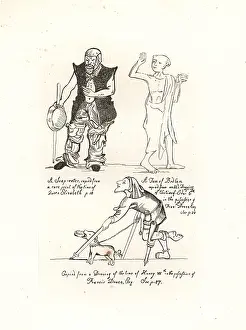 A Soap-eater, copied from
a rare print of the time of
Queen Elizabeth p
A Tom of Bedlam
copied from an old Drawing
of the time of
in the possession of
Francis Douce Esq
See p
Copied from a Drawing of the time of Henry VIIth in the possession of
Francis Douce, Esq. See p. 37.